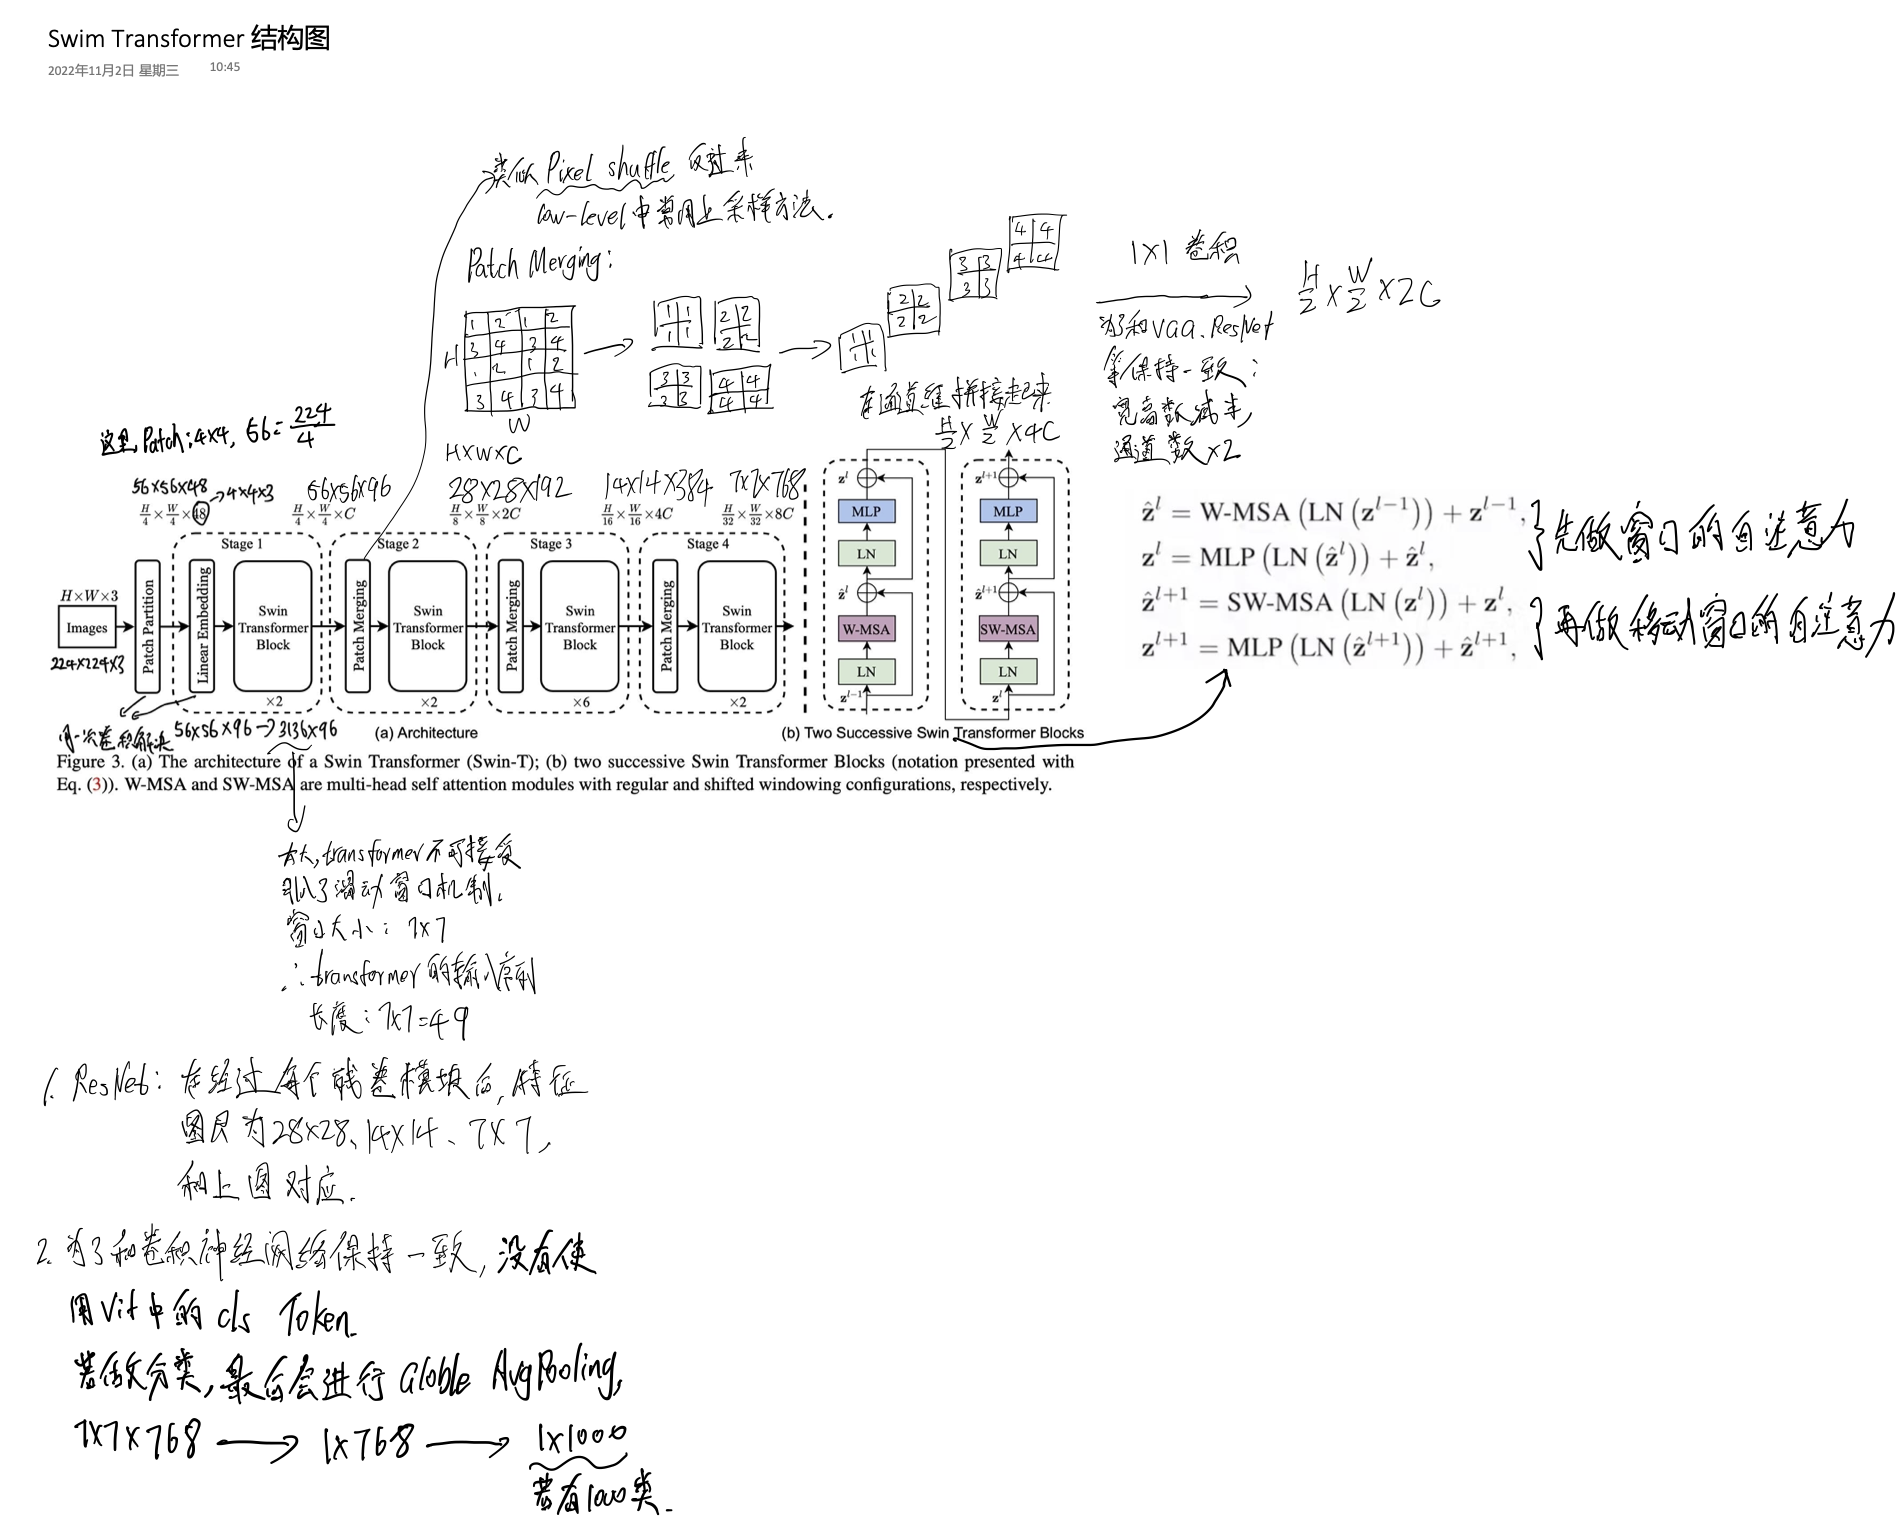 Swim Transformer 结构图
2022年11月2日 星期三 10:45
类似 Pixel shuffle 反过来
low-level中常用上采样方法.
Patch Merging:
1 2 1 2
3 4 3 4
1 2 1 2
3 4 3 4
H
W
H×W×C
1 1
1 1
2 2
2 2
3 3
3 3
4 4
4 4
1 1
1 1
2 2
2 2
3 3
3 3
4 4
4 4
在通道维拼接起来
H/2 × W/2 × 4C
1×1 卷积
为了和VGG.ResNet
等保持一致:
宽高数减半,
通道数×2
H/2 × W/2 × 2C
这里, Patch: 4×4, 56 = 224/4
56×56×48 → 4×4×3
56×56×96
28×28×192
14×14×384
7×7×768
H/4 × W/4 × 48
H/4 × W/4 × C
H/8 × W/8 × 2C
H/16 × W/16 × 4C
H/32 × W/32 × 8C
Stage 1
Stage 2
Stage 3
Stage 4
H×W×3
Images
224×224×3
Patch Partition
Linear Embedding
Swin Transformer Block
×2
Patch Merging
Swin Transformer Block
×2
Patch Merging
Swin Transformer Block
×6
Patch Merging
Swin Transformer Block
×2
用一次卷积解决
56×56×96 → 3136×96
(a) Architecture
z^l
MLP
LN
ẑ^l
W-MSA
LN
z^{l-1}
z^{l+1}
MLP
LN
ẑ^{l+1}
SW-MSA
LN
z^l
(b) Two Successive Swin Transformer Blocks
ẑ^l = W-MSA (LN (z^{l-1})) + z^{l-1},
z^l = MLP (LN (ẑ^l)) + ẑ^l,
先做窗口的自注意力
ẑ^{l+1} = SW-MSA (LN (z^l)) + z^l,
z^{l+1} = MLP (LN (ẑ^{l+1})) + ẑ^{l+1},
再做移动窗口的自注意力
Figure 3. (a) The architecture of a Swin Transformer (Swin-T); (b) two successive Swin Transformer Blocks (notation presented with
Eq. (3)). W-MSA and SW-MSA are multi-head self attention modules with regular and shifted windowing configurations, respectively.
太大, transformer不可接受
引入了滑动窗口机制.
窗口大小: 7×7
∴transformer的输入序列
长度: 7×7=49
1. ResNet: 在经过每个残卷模块后, 特征
图尺为28×28、14×14、7×7,
和上图对应.
2. 为了和卷积神经网络保持一致, 没有使
用Vit中的cls Token.
若做分类, 最后会进行Globle AvgPooling,
7×7×768 → 1×768 → 1×1000
若有1000类.